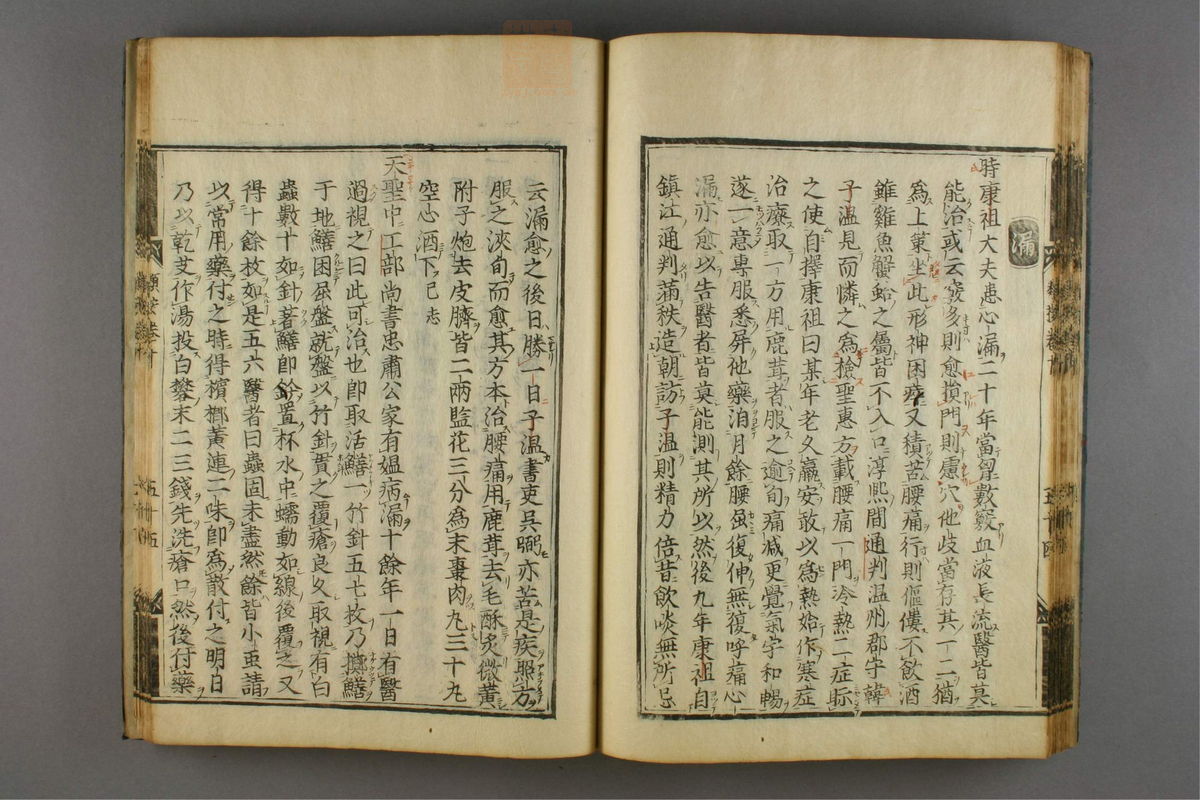 漏
時康祖大夫患心漏二十年當胷數竅血液長流醫皆莫
能治或云竅多則愈損門則慮穴他歧當存其一二猶
為上策坐此形神困瘁又積苦腰痛行則傴僂不飲酒
雖雞魚蟹蛤之屬皆不入口淳熙間通判温州郡守韓
子温見而憐之為檢聖惠方載腰痛一門冷熱二症眎
之使自擇康祖曰某年老久羸安敢以為熱始作寒症
治療取一方用鹿茸者服之逾旬痛减更覺氣宇和暢
遂一意專服悉屏他藥洎月餘腰虽復伸無復呼痛心
漏亦愈以告醫者皆莫能測其所以然後九年康祖自
鎮江通判滿秩造朝訪子温則精力倍昔飲啖無所忌
云漏愈之後日勝一日子温書吏吳弼亦苦是疾照方
服之浹旬而愈其方本治腰痛用鹿茸去毛酥炙微黄
附子炮去皮臍皆二兩監花三分為末棗肉丸三十丸
空心酒下已志
天聖中工部尚書忠肅公家有媼病漏十餘年一日有醫
過視之曰此可治也即取活鱔一竹針五七枚乃擲鱔
于地鱔困屈盤就盤以竹針貫之覆瘡良久取視有白
蟲數十如針著鱔即鈴置杯水中蠕動如線後覆之又
得十餘枚如是五六醫者曰蟲固未盡然餘皆小虫請
以常用藥付之時得檳榔黄連二味即為散付之明日
乃以乾艾作湯投白礬末二三錢先洗瘡口然後付藥
五十四
五十五